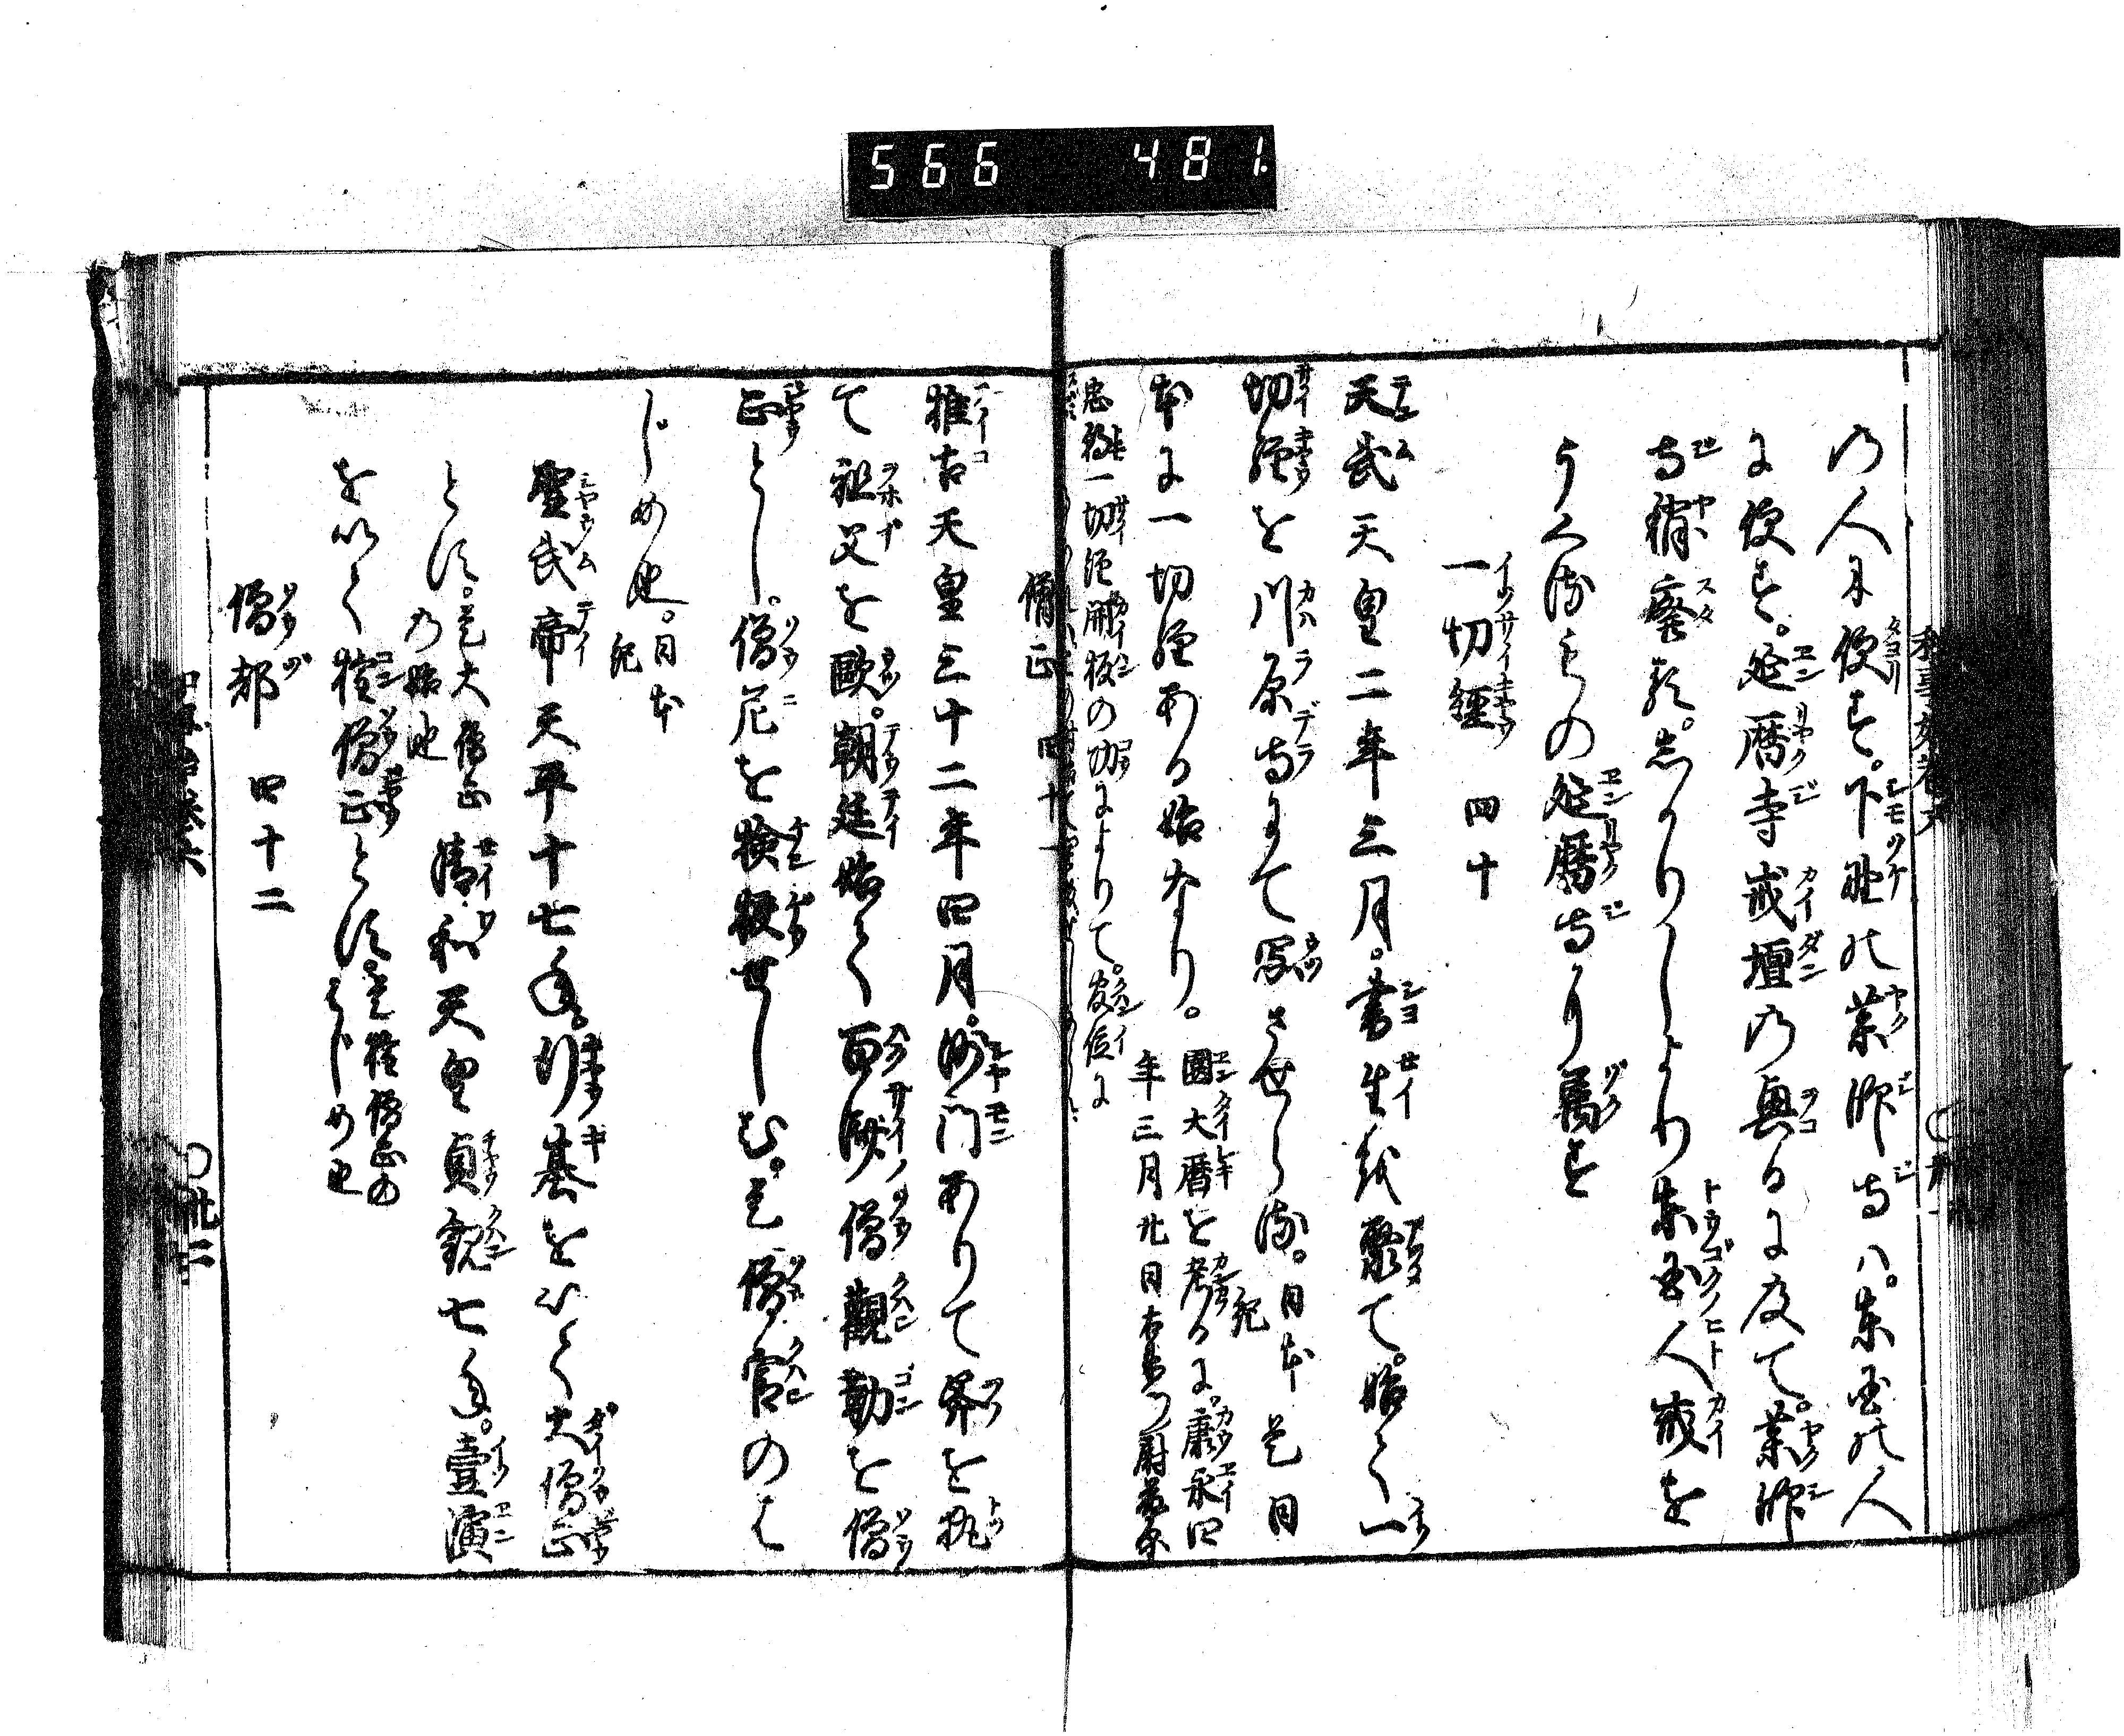 566 481.
の人に便す。下野の薬師寺ハ。東国の人
に便す。延暦寺戒壇の興るに及て。薬師
寺稍廃る。しかりしより東国人戒を
うくるもの延暦寺に属す
一切経 四十
天武天皇二年三月。書生を聚て。始て一
切経を川原寺にて写させらる。日本紀 是日
本に一切経ある始なり。園大暦を考るに。康永四
年三月廿日右衛門尉藤原
忠 一切経開板の功によりて。官位に
僧正 四十一
推古天皇三十二年四月。沙門ありて斧を執
て祖父を殴。朝廷始て百済僧観勒を僧
正とし。僧尼を検校せしむ。是僧官のは
じめ也。日本紀
聖武帝天平十七年。行基をいて大僧正
とす。是大僧正の始也 清和天皇貞観七年。壹演
を以て権僧正とす。是権僧正のはじめ也
僧都 四十二
巻六
〇卅二